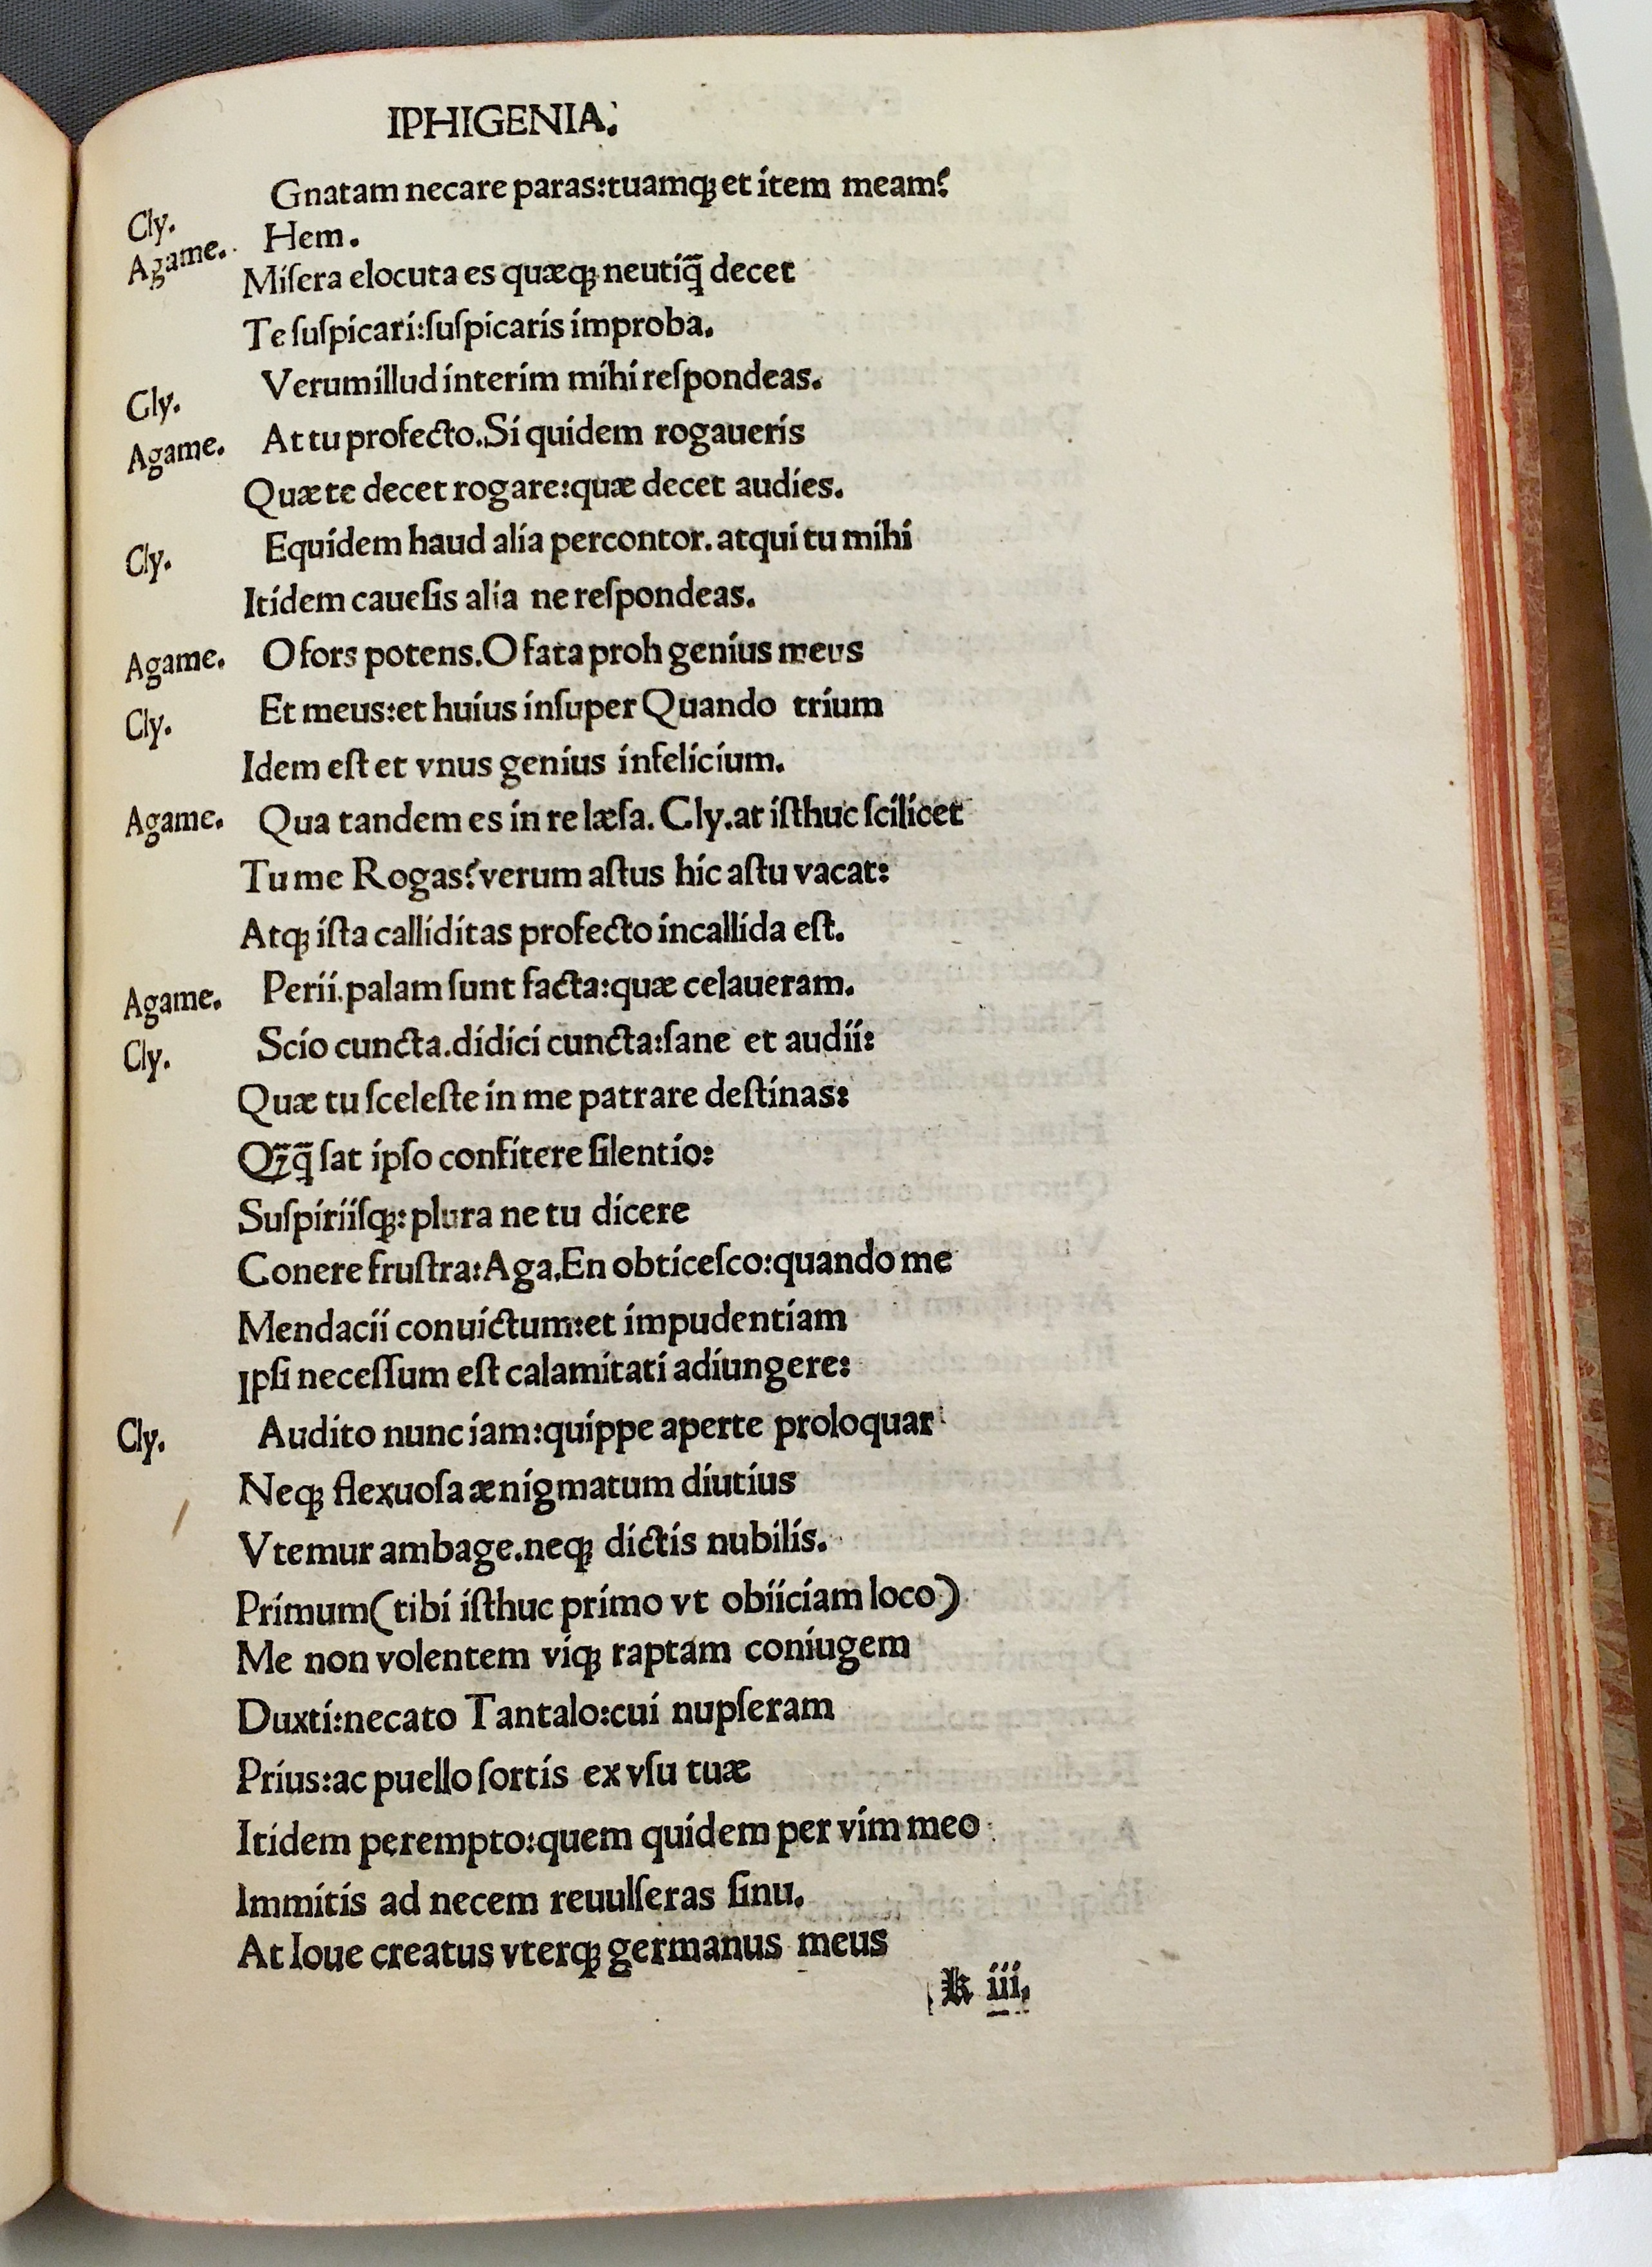 IPHIGENIA.
Gnatam necare paras:tuamqꝫ et item meam?
Cly. Hem.
Agame. Miſera elocuta es quæqꝫ neutiq̃ decet
Te ſuſpicari:ſuſpicaris improba.
Cly. Verum illud interim mihi reſpondeas.
Agame. At tu profecto.Si quidem rogaueris
Quæ te decet rogare:quæ decet audies.
Cly. Equidem haud alia percontor.atqui tu mihi
Itidem caueſis alia ne reſpondeas.
Agame. O fors potens.O fata proh genius meus
Cly. Et meus:et huius inſuper Quando trium
Idem eſt et vnus genius infelicium.
Agame. Qua tandem es in re læſa. Cly.at iſthuc ſcilicet
Tu me Rogas?verum aſtus hic aſtu vacat:
Atqꝫ iſta calliditas profecto incallida eſt.
Agame. Perii.palam ſunt facta:quæ celaueram.
Cly. Scio cuncta.didici cuncta:ſane et audii:
Quæ tu ſceleſte in me patrare deſtinas:
Qꝫ̃q̃ ſat ipſo confitere ſilentio:
Suſpiriiſqꝫ:plura ne tu dicere
Conere fruſtra:Aga.En obticeſco:quando me
Mendacii conuictum:et impudentiam
Ipſi neceſſum eſt calamitati adiungere:
Cly. Audito nunc iam:quippe aperte proloquar
Neqꝫ flexuoſa ænigmatum diutius
Vtemur ambage.neqꝫ dictis nubilis.
Primum(tibi iſthuc primo vt obiiciam loco)
Me non volentem viqꝫ raptam coniugem
Duxti:necato Tantalo:cui nupſeram
Prius:ac puello ſortis ex vſu tuæ
Itidem perempto:quem quidem per vim meo
Immitis ad necem reuulſeras ſinu.
At Ioue creatus vterqꝫ germanus meus
k iii.